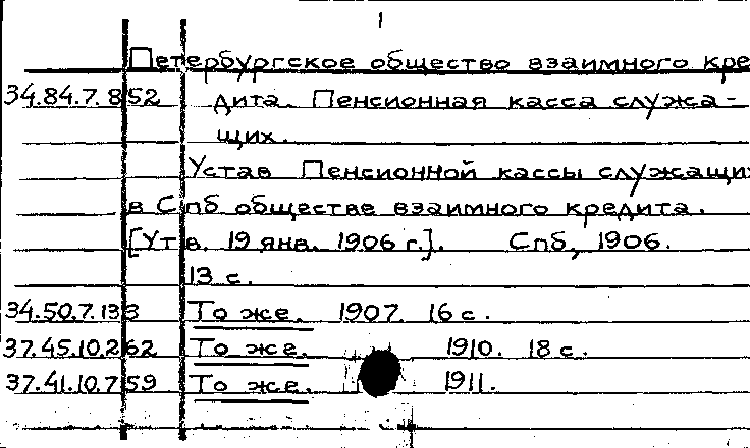 1
Петербургское общество взаимного кре
34.84.7.852 дита. Пенсионная касса служа-
щих.
Устав Пенсионной кассы служащих
в Спб обществе взаимного кредита.
[Утв. 19 янв. 1906 г.]. Спб, 1906.
13 с.
34.50.7.133 То же. 1907. 16 с.
37.45.10.262 То же. 1910. 18 с.
37.41.10.759 То же. 1911.